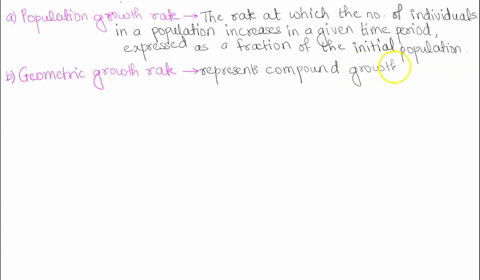 a) Population growth rate → The rate at which the no. of individuals
in a population increases in a given time period,
expressed as a fraction of the initial population.
b) Geometric growth rate → represents compound growth